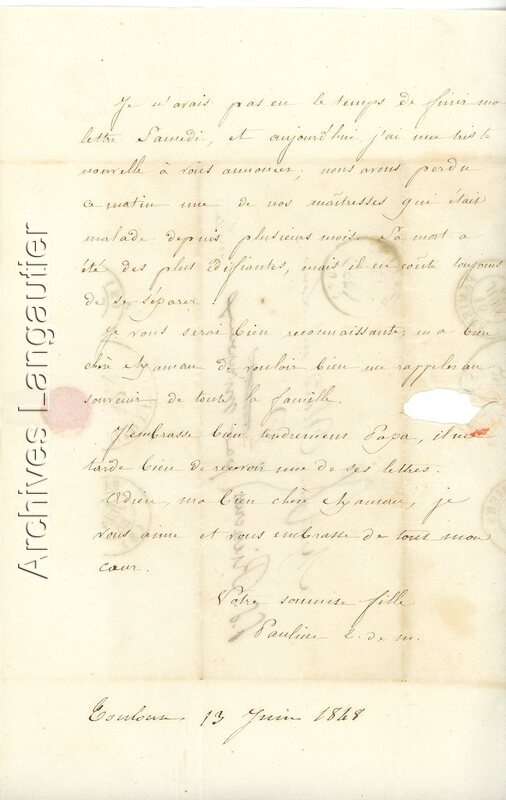 Je n'avais pas eu le temps de finir ma
lettre Samedi, et aujourd'hui j'ai une triste
nouvelle à vous annoncer; nous avons perdu
ce matin une de nos maîtresses qui était
malade depuis plusieurs mois. Sa mort a
été des plus édifiantes, mais il en coûte toujours
de se séparer.
Je vous serai bien reconnaissante, ma bien
chère Maman de vouloir bien me rappeler au
souvenir de toute la famille.
J'embrasse bien tendrement Papa, il me
tarde bien de recevoir une de ses lettres.
Adieu, ma bien chère Maman, je
vous aime et vous embrasse de tout mon
cœur.
Votre soumise fille
Pauline L. de M.
Toulouse 13 Juin 1848
Archives Langautier